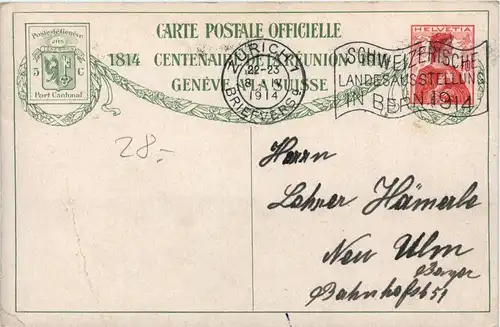 CARTE POSTALE OFFICIELLE
1814 CENTENAIRE DE LA RÉUNION 1914
GENÈVE A LA SUISSE
Poste de Genève
5 C
Port Cantonal
ZÜRICH
22-23
1914
BRIEFVERS.
HELVETIA
SCHWEIZERISCHE
LANDESAUSSTELLUNG
IN BERN 1914
28.-
Herrn
Lehrer Hämerle
Neu Ulm
Bayern
Bahnhofstr 51